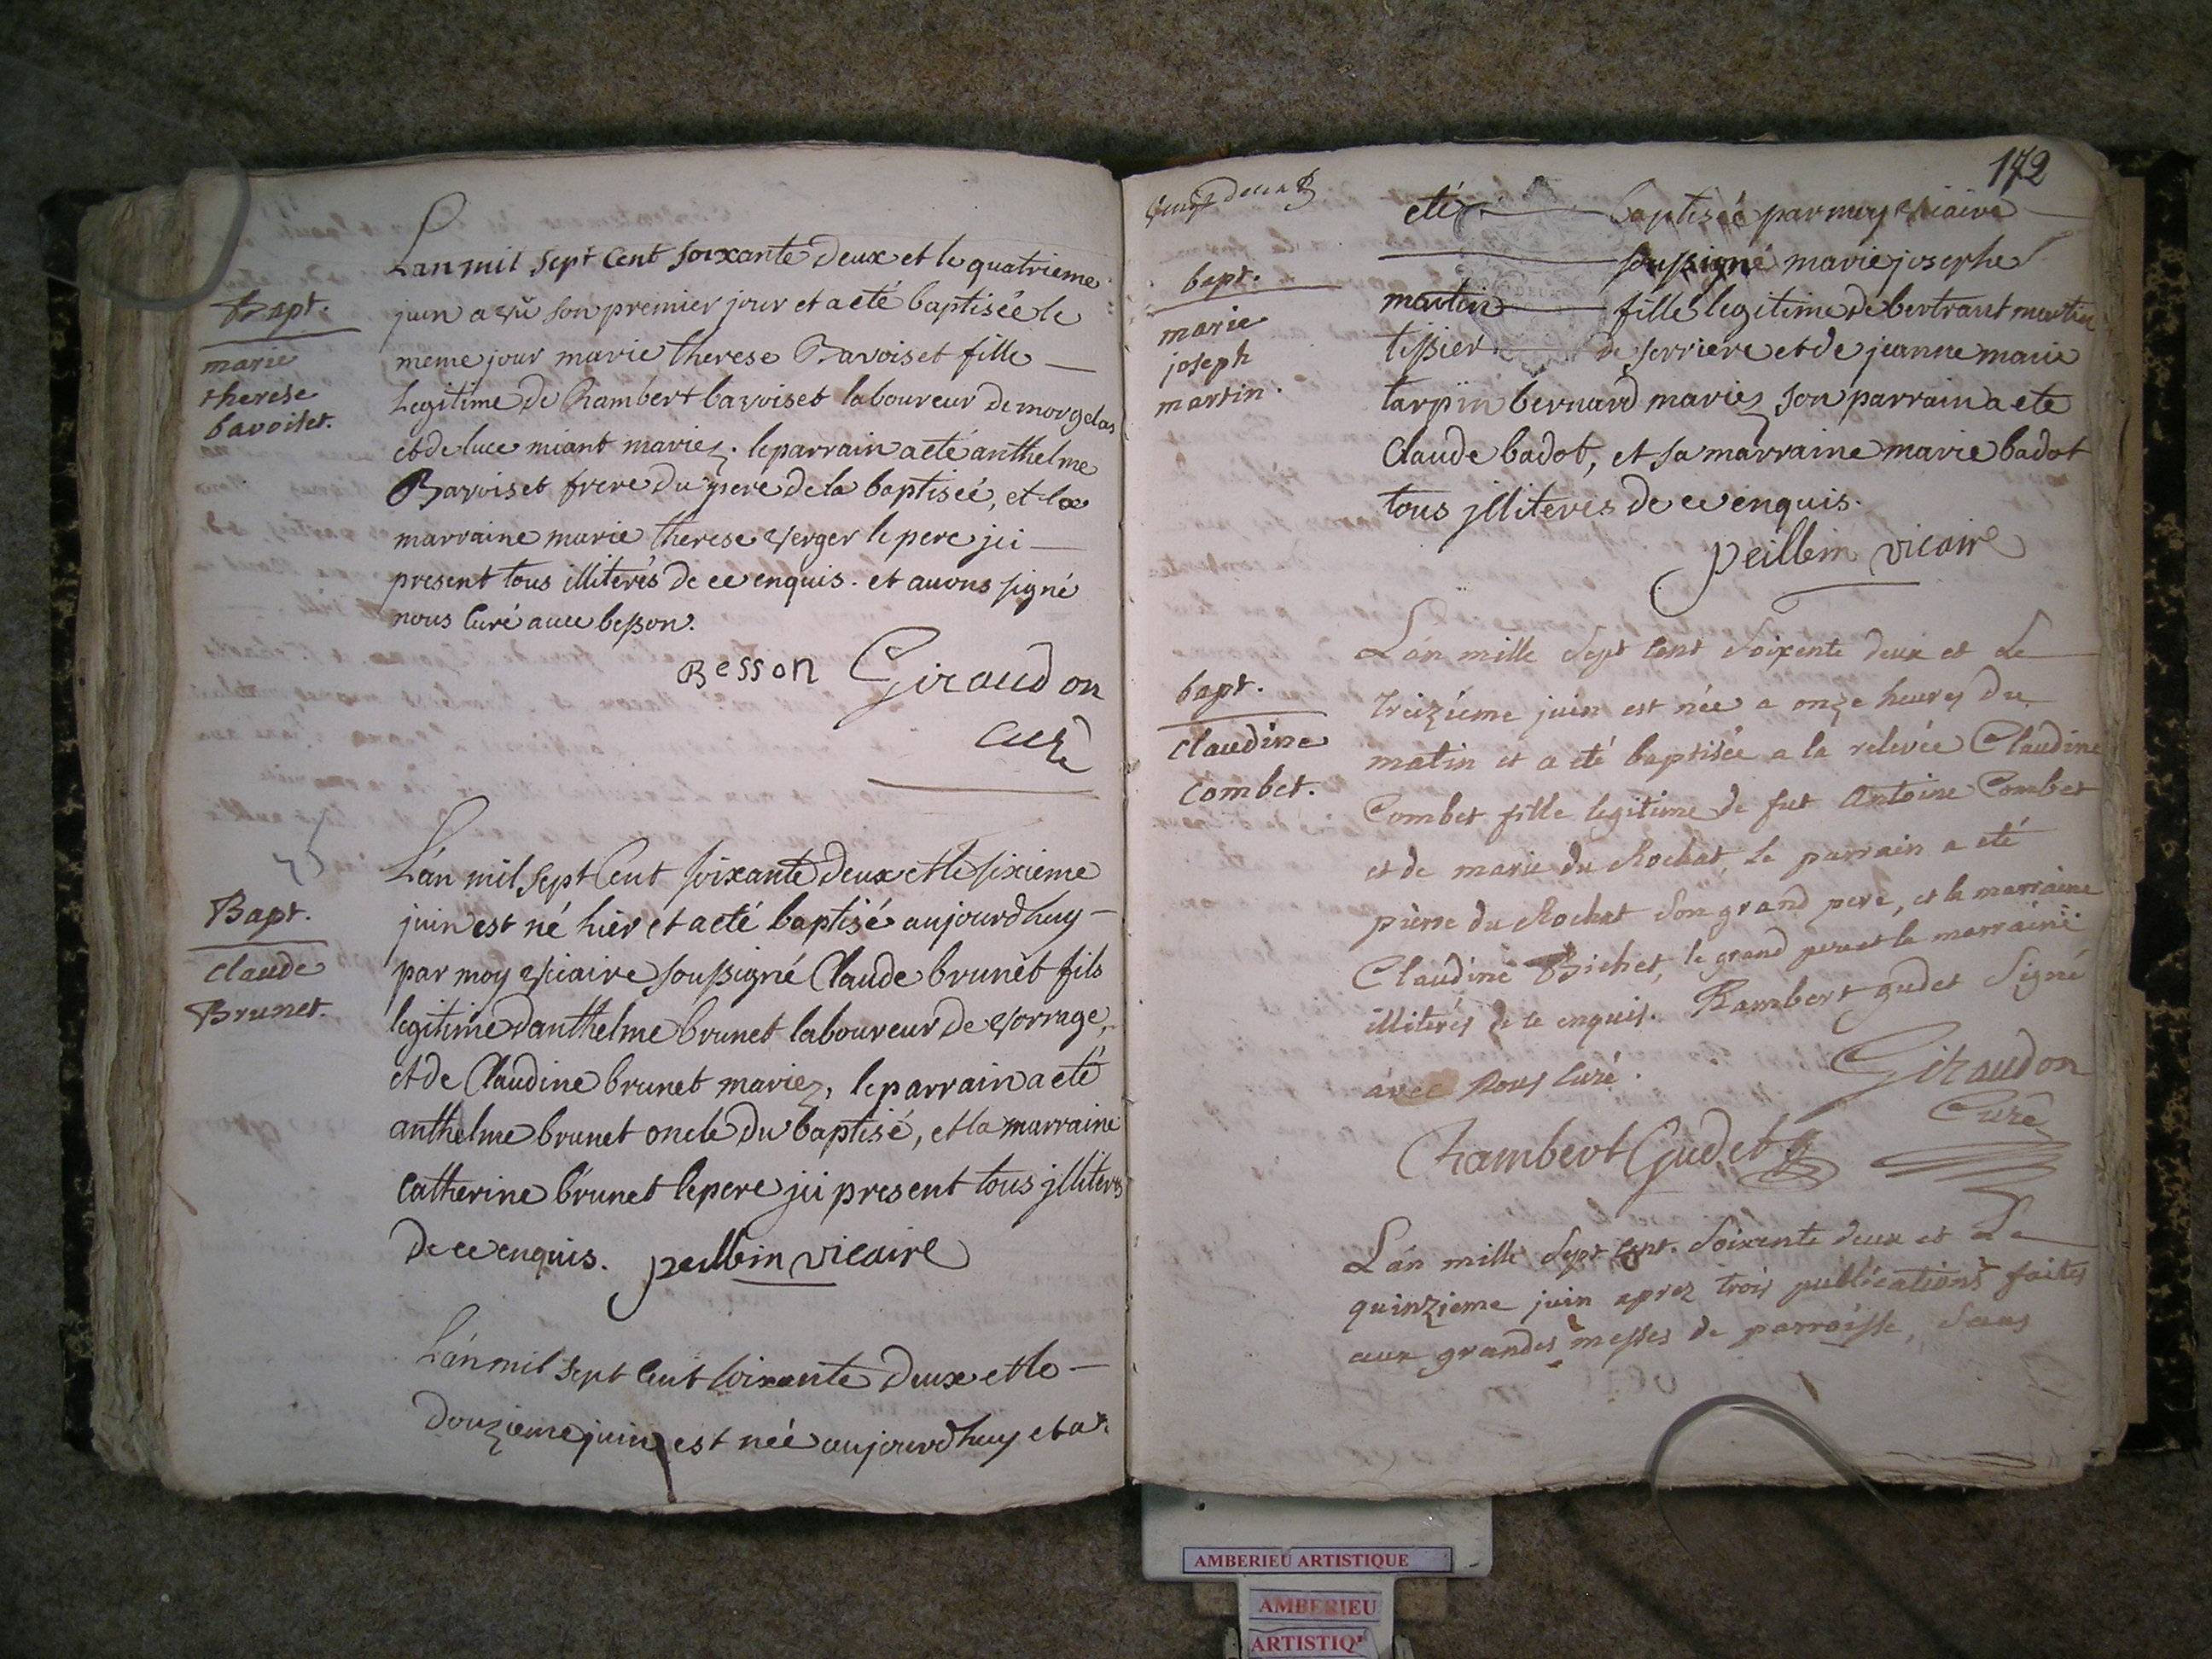 Bapt.
marie
therese
bavoiset.
Lan mil sept cent soixante deux et le quatrieme
juin a vû son premier jour et a eté baptisée le
meme jour marie therese Bavoiset fille
Legitime de Rambert bavoiset laboureur de morgelas
et de luce miant mariez. le parrain a eté anthelme
Bavoiset frere du pere de la baptisée, et la
marraine marie therese verger le pere jci
present tous illiterés de ce enquis. et avons signé
nous curé avec besson.
Besson Giraudon
curé
Bapt.
claude
Brunet.
L'an mil sept Cent soixante deux et le sixieme
juin est né hier et a eté baptisé aujourdhuy
par moy vicaire soussigné Claude brunet fils
legitime danthelme brunet laboureur de vorrage,
et de Claudine brunet mariez, le parrain a eté
anthelme brunet oncle du baptisé, et la marraine
catherine brunet le pere jci present tous jlliteres
de ce enquis. peillein vicaire
L'an mil sept cent soixante deux et le
douzieme juin est née aujourdhuy et a
172
bapt.
marie
joseph
martin.
eté baptisée par moy viciaire
soussigné marie josephe
martin fille legitime de bertrant martin
tissier de serriere et de jeanne marie
tarpin bernard mariez son parrain a ete
Claude badot, et sa marraine marie badot
tous jlliterés de ce enquis.
peillein vicaire
bapt.
claudine
combet.
L'an mille sept cent soixente deux et le
treizieme juin est née a onze heures du
matin et a eté baptisée a la relevée Claudine
Combet fille legitime de fut Antoine Combet
et de marie du Rochat, le parrain a eté
pierre du Rochat son grand pere, et la marraine
Claudine Bichet, le grand pere et la marraine
illiterés de ce enquis. Rambert gudet signé
avec nous curé.
Giraudon
Curé
Rambert Gudet
L'an mille sept cent soixente deux et le
quinzieme juin aprez trois publications faites
aux grandes messes de parroisse, sans
AMBERIEU ARTISTIQUE
AMBERIEU
ARTISTIQ